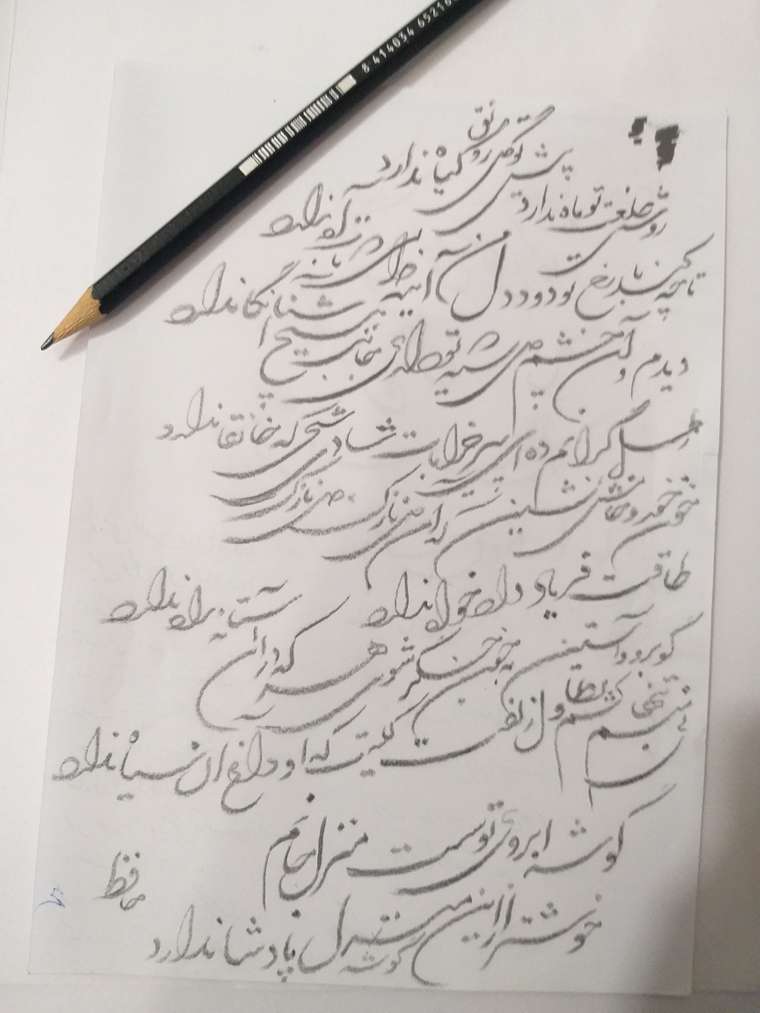 8 414034 65216
پیش تو گل رونق گیاه ندارد
روشنی طلعت تو ماه ندارد
تا چه کند با رخ تو دود دل من آینه
دیدم و آن چشم سیه تو داری جانب هیچ آشنا نگاه ندارد
رطل گرانم ده ای خرابات شادی شیخی که خانقاه ندارد
خون خور و خامش نشین که آن دل نازک
طاقت فریاد دادخواه ندارد
گو برو و آستین خون جگر شوی هر که در آستانه راه ندارد
نی من تنها کشم تطاول زلفت کیست که او داغ آن سیاه ندارد
گوشه ابروی توست منزل جانم
خوشتر از این گوشه پادشا ندارد
حافظ